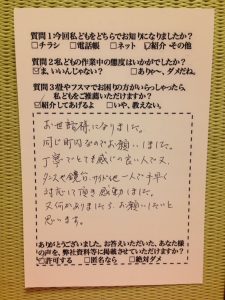 質問1今回私どもをどちらでお知りになりましたか？
□チラシ □電話帳 □ネット ☑紹介 その他
質問2私どもの作業中の態度はいかがでしたか？
☑ま、いいんじゃない？ □ありゃ～、ダメだね。
質問3畳やフスマでお困りの方がいらっしゃったら、
私どもをご推薦いただけますか？
☑紹介してあげるよ □いや、教えない。
お世話様になりました。
同じ町内なのでお願いしました。
丁寧でとても感じの良い人で又、
タンスや鏡台、サイドボード他一人で手早く
対応して頂き感動しました。
又何かありましたらお願いしたいと
思います。
ありがとうございました。お答えいただいた、あなた様
の声を、弊社資料等に掲載させていただけますか？
☑許可する □匿名なら □絶対ダメ